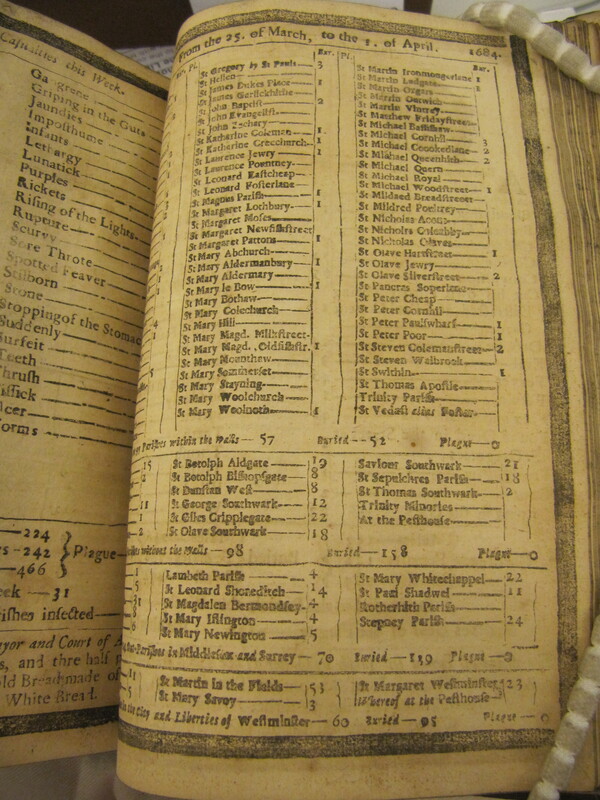 Casualties this Week.
Gangrene
Griping in the Guts
Jaundies
Imposthume
Infants
Lethargy
Lunatick
Purples
Rickets
Rising of the Lights
Rupture
Scurvy
Sore Throte
Spotted Feaver
Stilborn
Stone
Stopping of the Stomac
Suddenly
Surfeit
Teeth
Thrush
Tissick
orms
224
242 Plague
466
31
rishes infected
ayor and Court of A
s, and thre half
old Bread made of
White Bread.
From the 25. of March, to the 1. of April. 1684.
Bur. Pl. Bur.
St Gregory by St Pauls 3
St Hellen
St James Dukes Place 1
St James Garlickhithe
St John Baptist 2
St John Evangelist
St John Zachary
St Katharine Coleman 1
St Katharine Creechurch 1
St Laurence Jewry 1
St Laurence Pountney
St Leonard Eastcheap
St Leonard Fosterlane
St Magnus Parish 1
St Margaret Lothbury 1
St Margaret Moses
St Margaret Newfishstreet
St Margaret Pattons 1
St Mary Abchurch
St Mary Aldermanbury 1
St Mary Aldermary
St Mary le Bow 1
St Mary Bothaw
St Mary Colechurch
St Mary Hill
St Mary Magd. Milkstreet
St Mary Magd. Oldfishstr. 1
St Mary Mounthaw
St Mary Sommerset
St Mary Stayning
St Mary Woolchurch
St Mary Woolnoth 1
St Martin Ironmongerlane 1
St Martin Ludgate 1
St Martin Orgars
St Martin Outwich
St Martin Vintrey
St Matthew Fridaystreet
St Michael Bassishaw
St Michael Cornhil 3
St Michael Crookedlane 2
St Michael Queenhith 2
St Michael Quern
St Michael Royal
St Michael Woodstreet 1
St Mildred Breadstreet
St Mildred Poultrey
St Nicholas Acons
St Nicholas Coleabby
St Nicholas Olaves
St Olave Hartstreet 1
St Olave Jewry
St Olave Silverstreet 2
St Pancras Soperlane
St Peter Cheap
St Peter Cornhil
St Peter Paulswharf 1
St Peter Poor 1
St Steven Colemanstreet 2
St Steven Walbrook
St Swithin 1
St Thomas Apostle
Trinity Parish
St Vedast alias Foster
Parishes within the Walls 57 Buried 52 Plague 0
St Botolph Aldgate 19
St Botolph Bishopsgate 8
St Dunstan West 8
St George Southwark 12
St Giles Cripplegate 22
St Olave Southwark 18
Saviour Southwark 21
St Sepulchres Parish 18
St Thomas Southwark 2
Trinity Minories
At the Pesthouse
without the Walls 98 Buried 158 Plague 0
Lambeth Parish 4
St Leonard Shoreditch 14
St Magdalen Bermondsey 4
St Mary Islington 4
St Mary Newington 5
St Mary Whitechappel 22
St Paul Shadwel 11
Rotherhith Parish
Stepney Parish 24
Parishes in Middlesex and Surrey 70 Buried 139 Plague 0
St Martin in the Fields 53
St Mary Savoy 3
St Margaret Westminster 23
Whereof at the Pesthouse
in the City and Liberties of Westminster 60 Buried 95 Plague 0